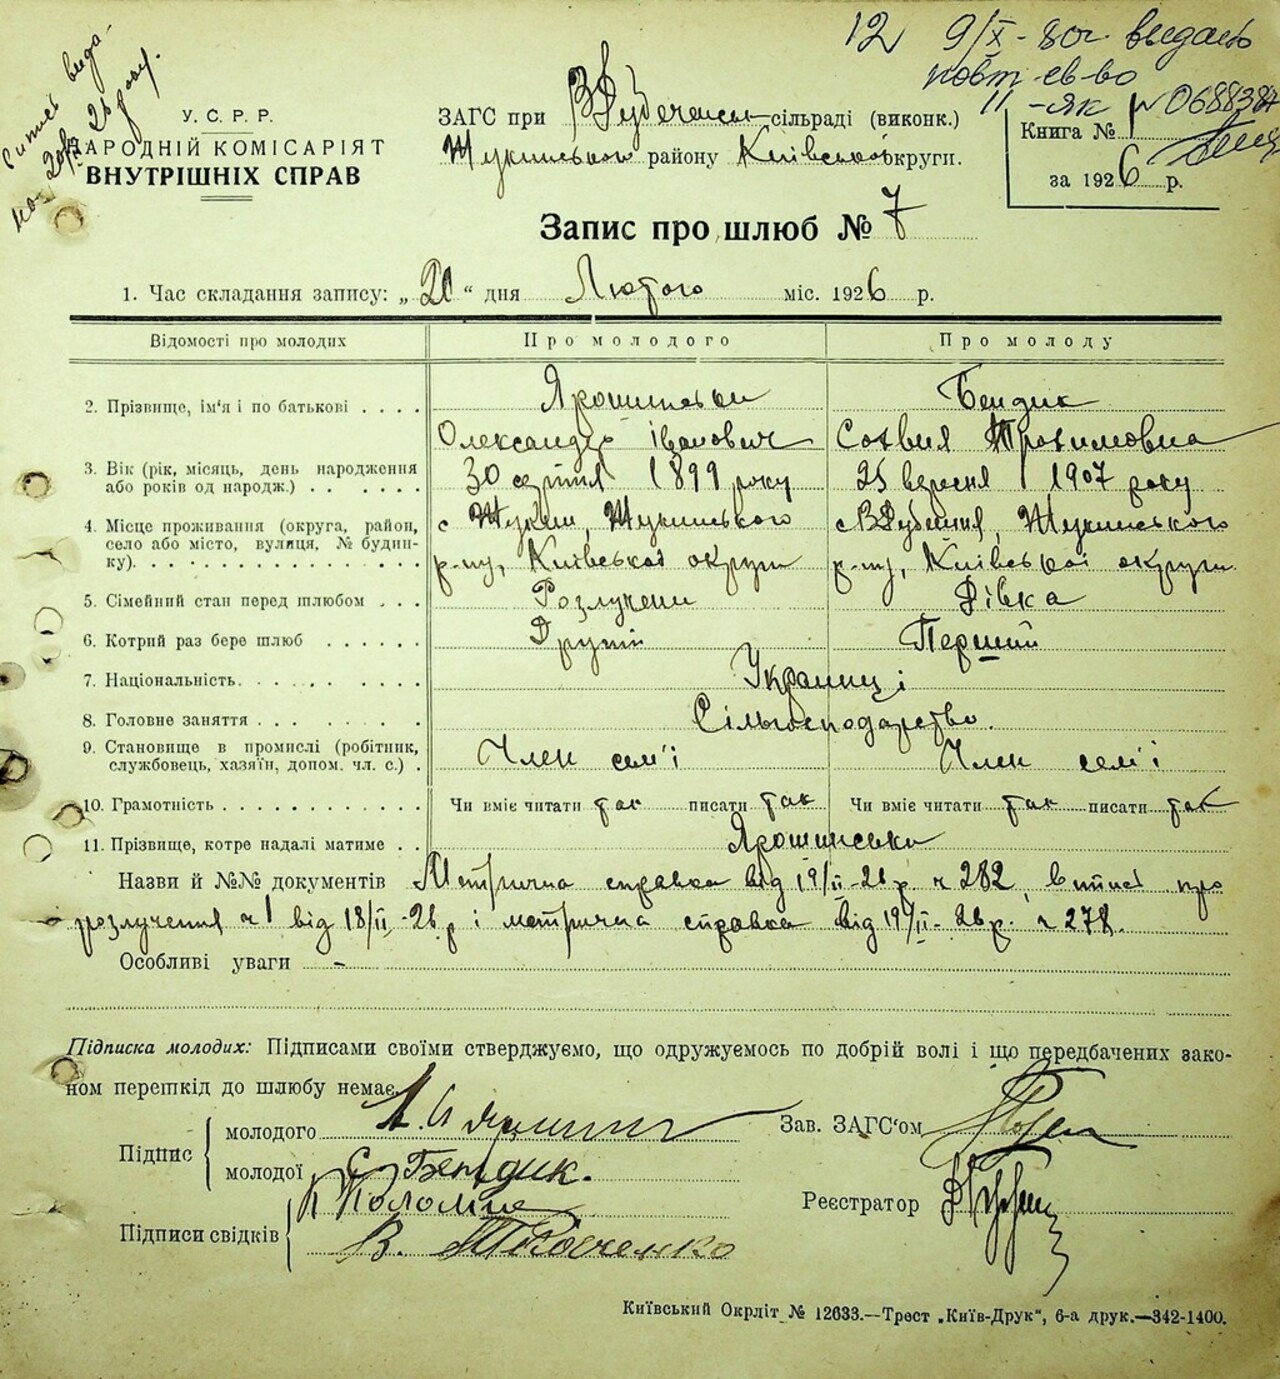 12 9/X-80г. выдано
повт. св-во
II-як № 0688384
Витпис вида-
но 20/II 26 року.
У. С. Р. Р.
НАРОДНІЙ КОМІСАРІЯТ
ВНУТРІШНІХ СПРАВ
ЗАГС при В Дубечанськ сільраді (виконк.)
Жукинського району Київської округи.
Книга № 1
за 1926 р.
Запис про шлюб № 7
1. Час складання запису: „20“ дня Лютого міс. 1926 р.
Відомості про молодих Про молодого Про молоду
2. Прізвище, ім'я і по батькові . . . . Ярошинськи Бендик
Олександр Іванович Софвия Трофимовна
3. Вік (рік, місяць, день народження 30 серпня 1899 року 25 вересня 1907 року
або років од народж.) . . . . . .
4. Місце проживання (округа, район, с Жукин, Жукинського с В Дубечня, Жукинського
село або місто, вулиця, № будин-
ку). . . . . . . . . . . . . . . р-ну, Київської округи р-ну, Київської округи
5. Сімейний стан перед шлюбом . . . Розлучени Дівка
6. Котрий раз бере шлюб . . . . . . Другий Перший
7. Національність. . . . . . . . . . Українці
8. Головне заняття . . . . . . . . . Сільгосподарство.
9. Становище в промислі (робітник, Член сем'ї Член сем'ї
службовець, хазяїн, допом. чл. с.) .
10. Грамотність . . . . . . . . . . . Чи вміє читати так писати так Чи вміє читати так писати так
11. Прізвище, котре надалі матиме . . Ярошинськи
Назви й №№ документів Метрична справка від 19/II-26 р. ч 282, витпис про
розлучення ч 1 від 18/II-26 р і метрична справка від 19/II-26 р. ч 278.
Особливі уваги -
Підписка молодих: Підписами своїми стверджуємо, що одружуємось по добрій волі і що передбачених зако-
ном перешкід до шлюбу немає.
Підпис
молодого
Зав. ЗАГС'ом
молодої С Бендик.
Реєстратор
Підписи свідків
Коломіец
В. Ткаченко
Київський Окрліт № 12633.—Трест „Київ-Друк“, 6-а друк.—342-1400.